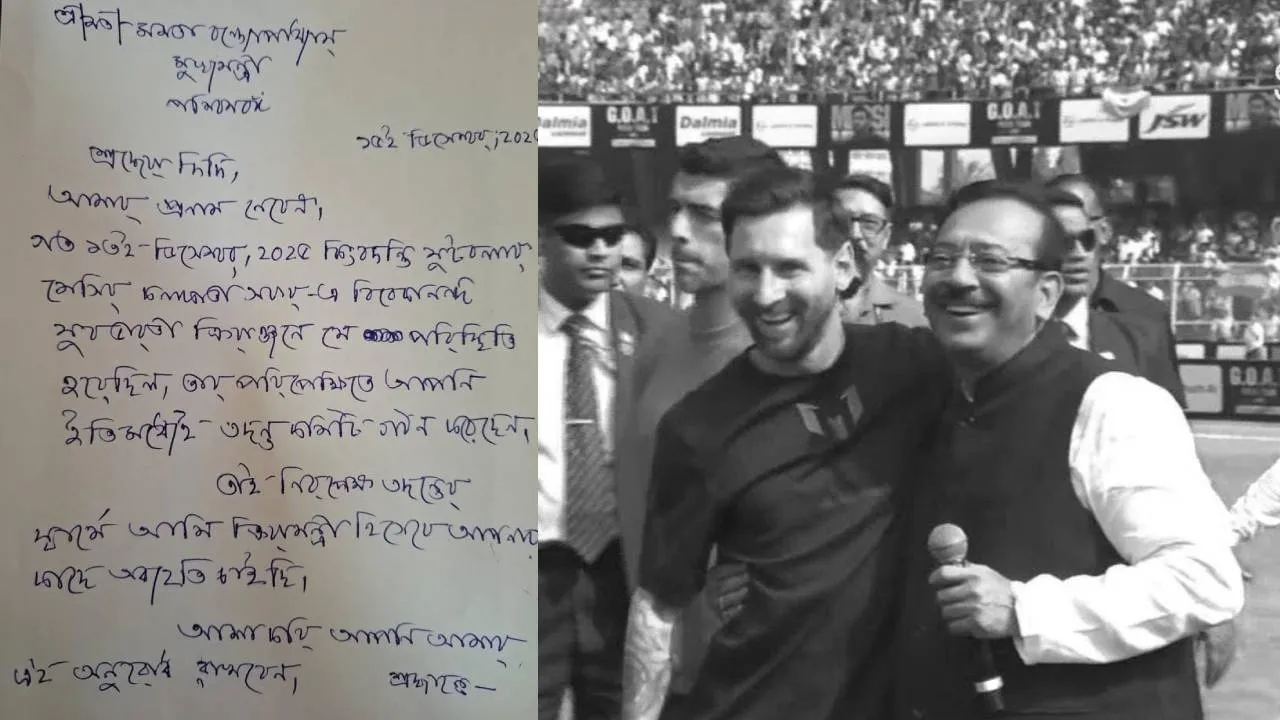 শ্রীমতী মমতা বন্দ্যোপাধ্যায়
মুখ্যমন্ত্রী
পশ্চিমবঙ্গ
১৫ই ডিসেম্বর, ২০২
শ্রদ্ধেয় দিদি,
আমার প্রনাম নেবেন।
গত ১৩ই ডিসেম্বর, ২০২৫ কিংবদন্তি ফুটবলার
মেসির কলকাতা সফর-এ বিবেকানন্দ
যুবভারতী ক্রিয়াঙ্গনে যে পরিস্থিতি
হয়েছিল, তার পরিপ্রেক্ষিতে আপনি
ইতিমধ্যেই তদন্ত কমিটি গঠন করেছেন।
তাই নিরপেক্ষ তদন্তের
স্বার্থে আমি ক্রিয়ামন্ত্রী হিসেবে আপনার
কাছে অব্যহতি চাইছি।
আশা করি আপনি আমার
এই অনুরোধ রাখবেন। শ্রদ্ধান্তে —
Dalmia
cement
G.O.A.T
Dalmia
cement
MESSI
G.O.A.T
JSW
G.O.A.T